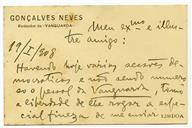 GONÇALVES NEVES
Redactor da «VANGUARDA»
Meu exmo e illus-
tre amigo:
19/5/908
Havendo hoje varias acções de-
mocraticas e não sendo numero-
so o pessoal da Vanguarda, tomo
a liberdade de lhe rogar a espe-
cial fineza de me enviar
LISBOA